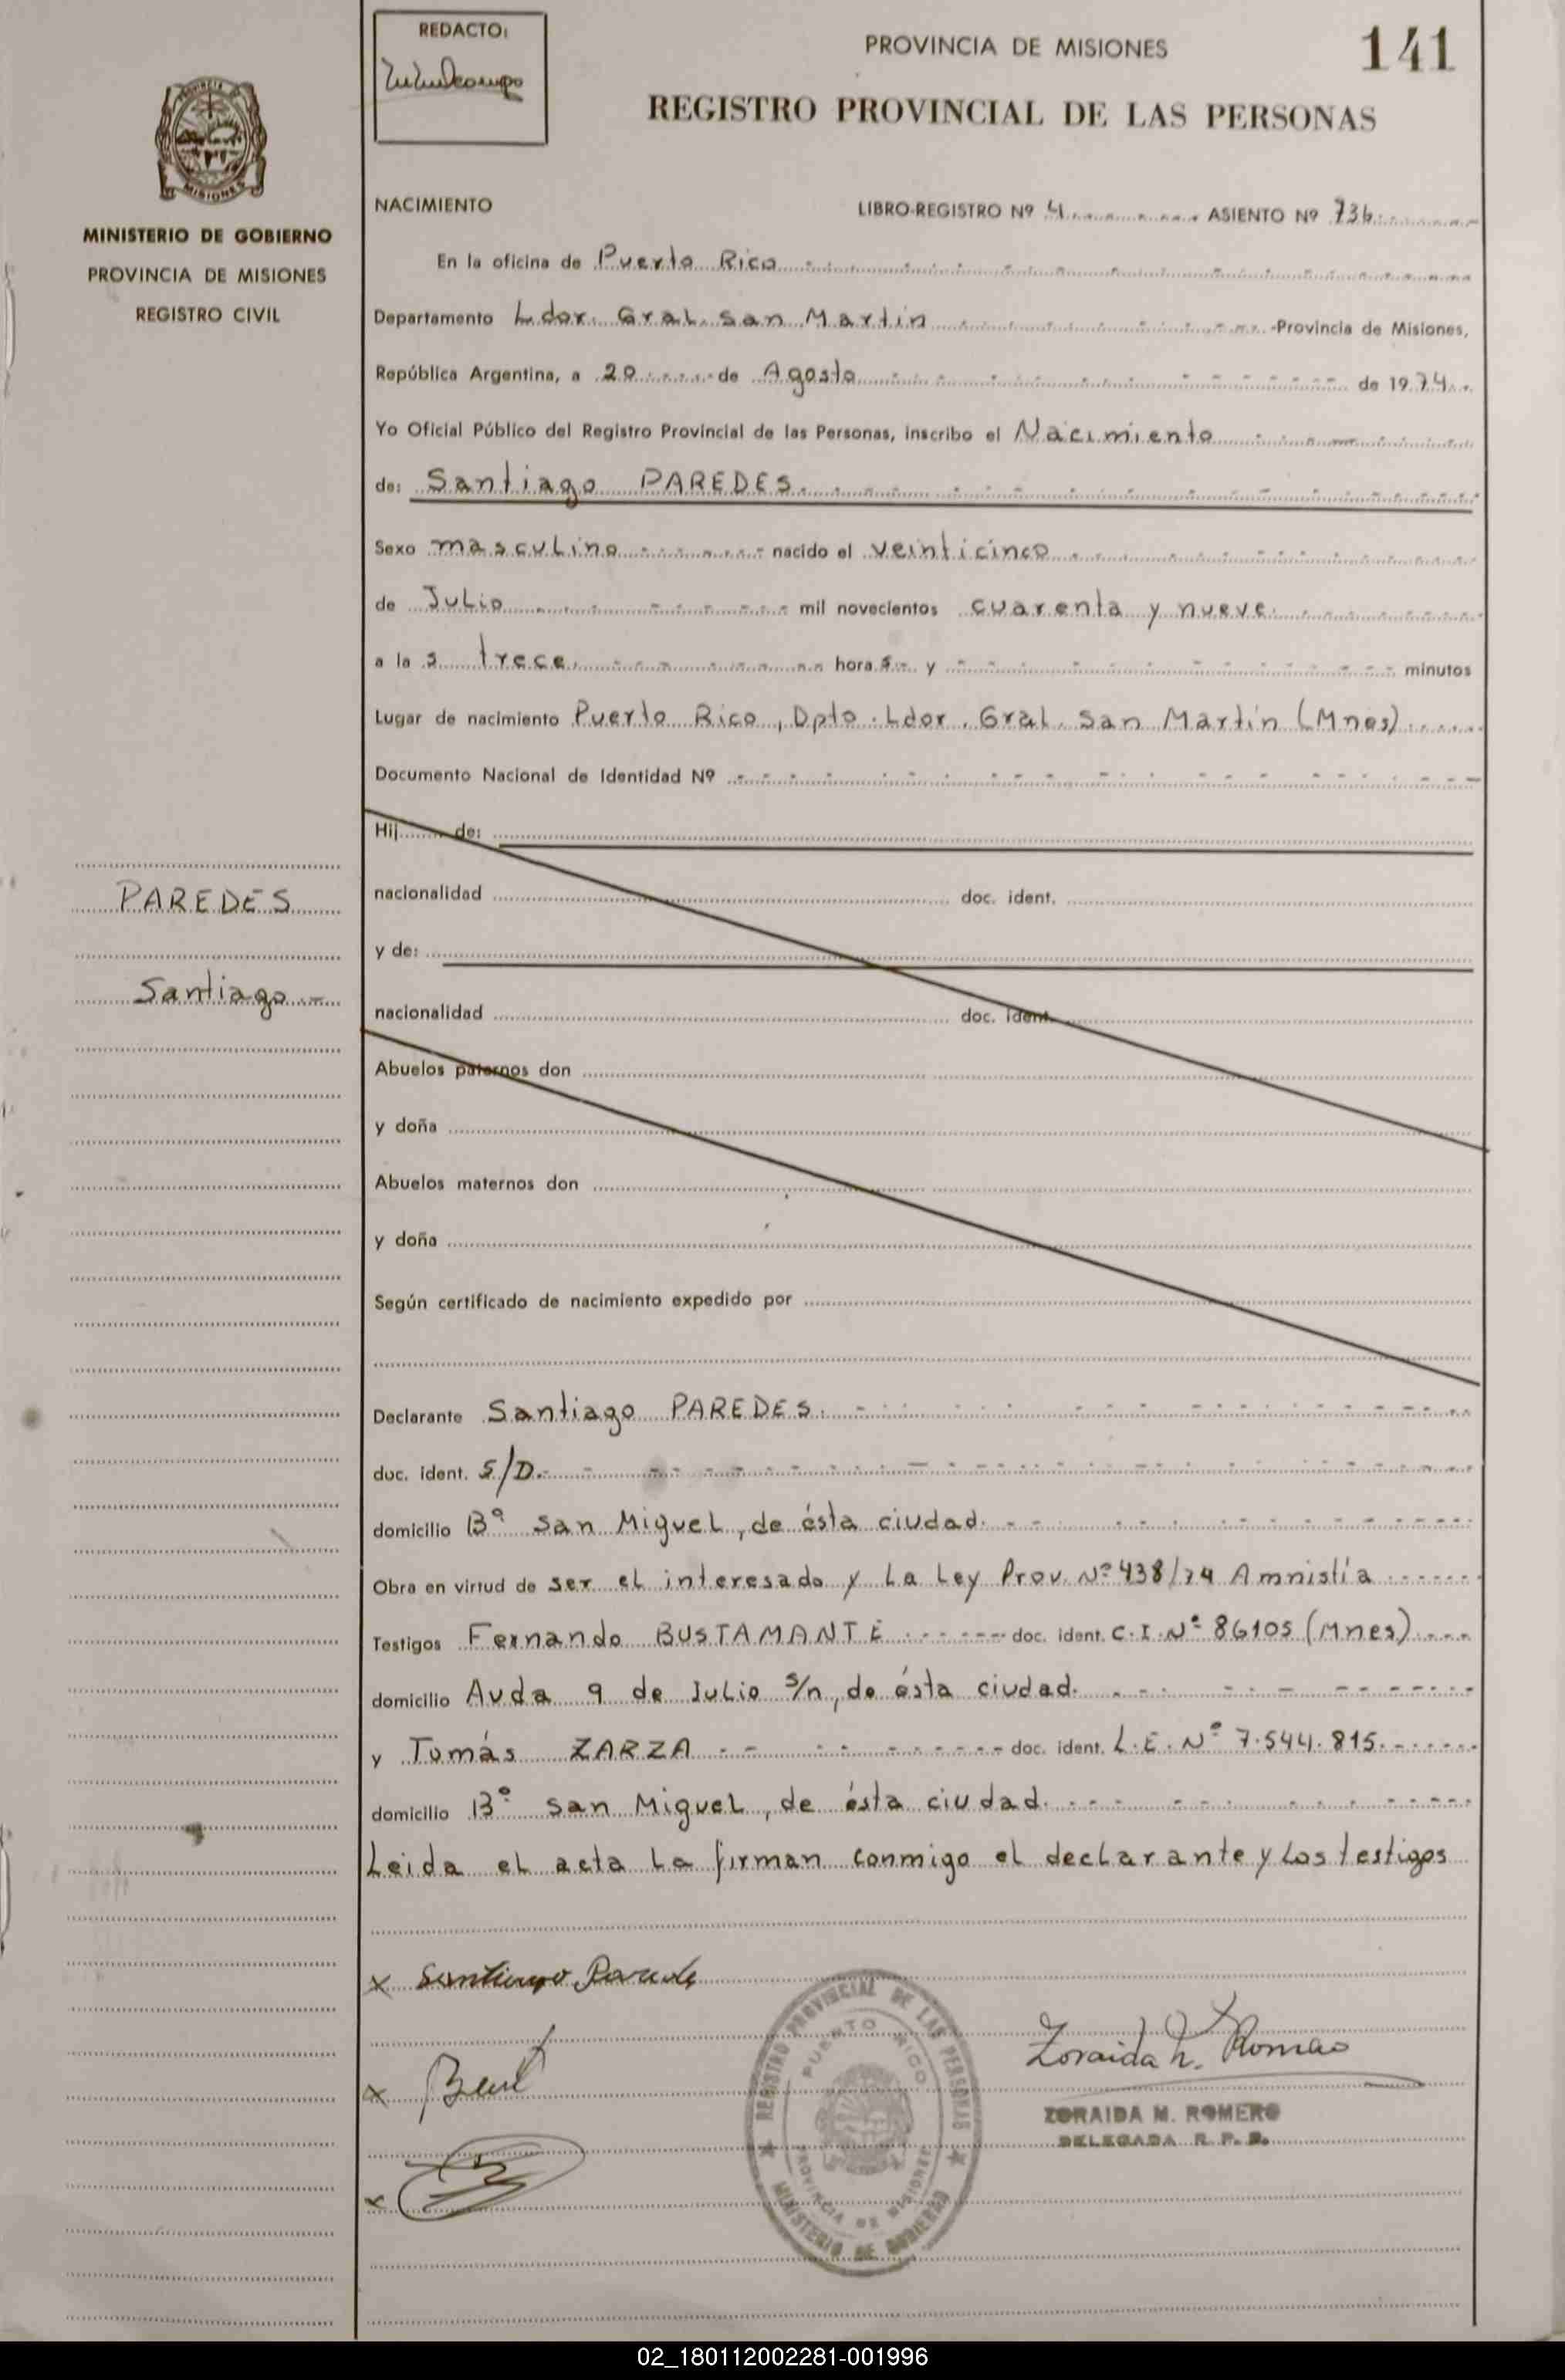 REDACTO:
PROVINCIA DE MISIONES
141
REGISTRO PROVINCIAL DE LAS PERSONAS
PROVINCIA DE
MISIONES
MINISTERIO DE GOBIERNO
PROVINCIA DE MISIONES
REGISTRO CIVIL
NACIMIENTO LIBRO-REGISTRO Nº 4 ASIENTO Nº 736
En la oficina de Puerto Rico
Departamento Ldor. Gral. San Martín -Provincia de Misiones,
República Argentina, a 20 de Agosto de 1974
Yo Oficial Público del Registro Provincial de las Personas, inscribo el Nacimiento
de: Santiago PAREDES.
Sexo masculino nacido el veinticinco
de Julio mil novecientos cuarenta y nueve
a las trece horas y - minutos
Lugar de nacimiento Puerto Rico, Dpto. Ldor. Gral. San Martín (Mnes)
Documento Nacional de Identidad Nº
Hij de:
PAREDES
nacionalidad doc. ident.
y de:
Santiago.-
nacionalidad doc. ident.
Abuelos paternos don
y doña
Abuelos maternos don
y doña
Según certificado de nacimiento expedido por
Declarante Santiago PAREDES.
doc. ident. S/D.-
domicilio Bº San Miguel, de ésta ciudad.
Obra en virtud de ser el interesado y La Ley Prov. Nº 438/74 Amnistía
Testigos Fernando BUSTAMANTE doc. ident. C.I.Nº 86105 (Mnes)
domicilio Avda 9 de Julio s/n, de ésta ciudad.
y Tomás ZARZA doc. ident. L.E. Nº 7.544.815.
domicilio Bº San Miguel, de ésta ciudad.
Leida el acta la firman conmigo el declarante y Los testigos
x Santiago Paredes
x
x
REGISTRO PROVINCIAL DE LAS PERSONAS
PUERTO RICO
PROVINCIA DE MISIONES
MINISTERIO DE GOBIERNO
Zoraida M. Romero
ZORAIDA M. ROMERO
DELEGADA R. P. P.
02_180112002281-001996